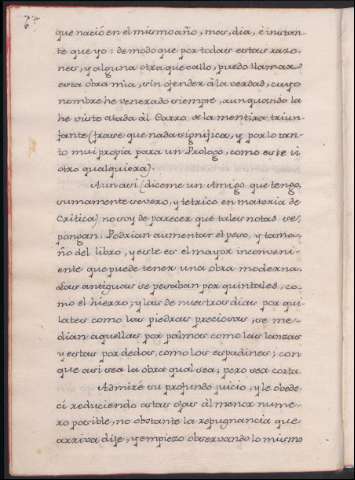 que nació en el mismo año, mes, dia, è instan-
te que yo: de modo que por todas estas razo-
nes, y alguna otra que callo, puedo llamar
esta obra mia, sin ofender à la verdad, cuyo
nombre he venerado siempre, aun quando la
he visto atada al Carro de la mentira triun-
fante (frase que nada significa, y por lo tan-
to mui propia para un Prologo, como este ù
otro qualquiera).
Aun asi (diceme un Amigo que tengo,
sumamente severo, y tetrico en materia de
Critica) no soy de parecer que tales notas se
pongan. Podrian aumentar el peso, y tama-
ño del libro, y este es el mayor inconveni-
ente que puede tener una obra moderna.
Las antiguas se pesaban por quintales, co-
mo el hierro, y las de nuestros dias por qui-
lates como las piedras preciosas; se me-
dian aquellas por palmos como las lanzas
y estas por dedos, como los espadines; con
que asi sea la obra qual sea; pero sea corta.
Admirè su profundo juicio, y le obede-
cì reduciendo estas ojas al menor nume-
ro posible, no obstante la repugnancia que
arriva dije, y empiezo observando lo mismo